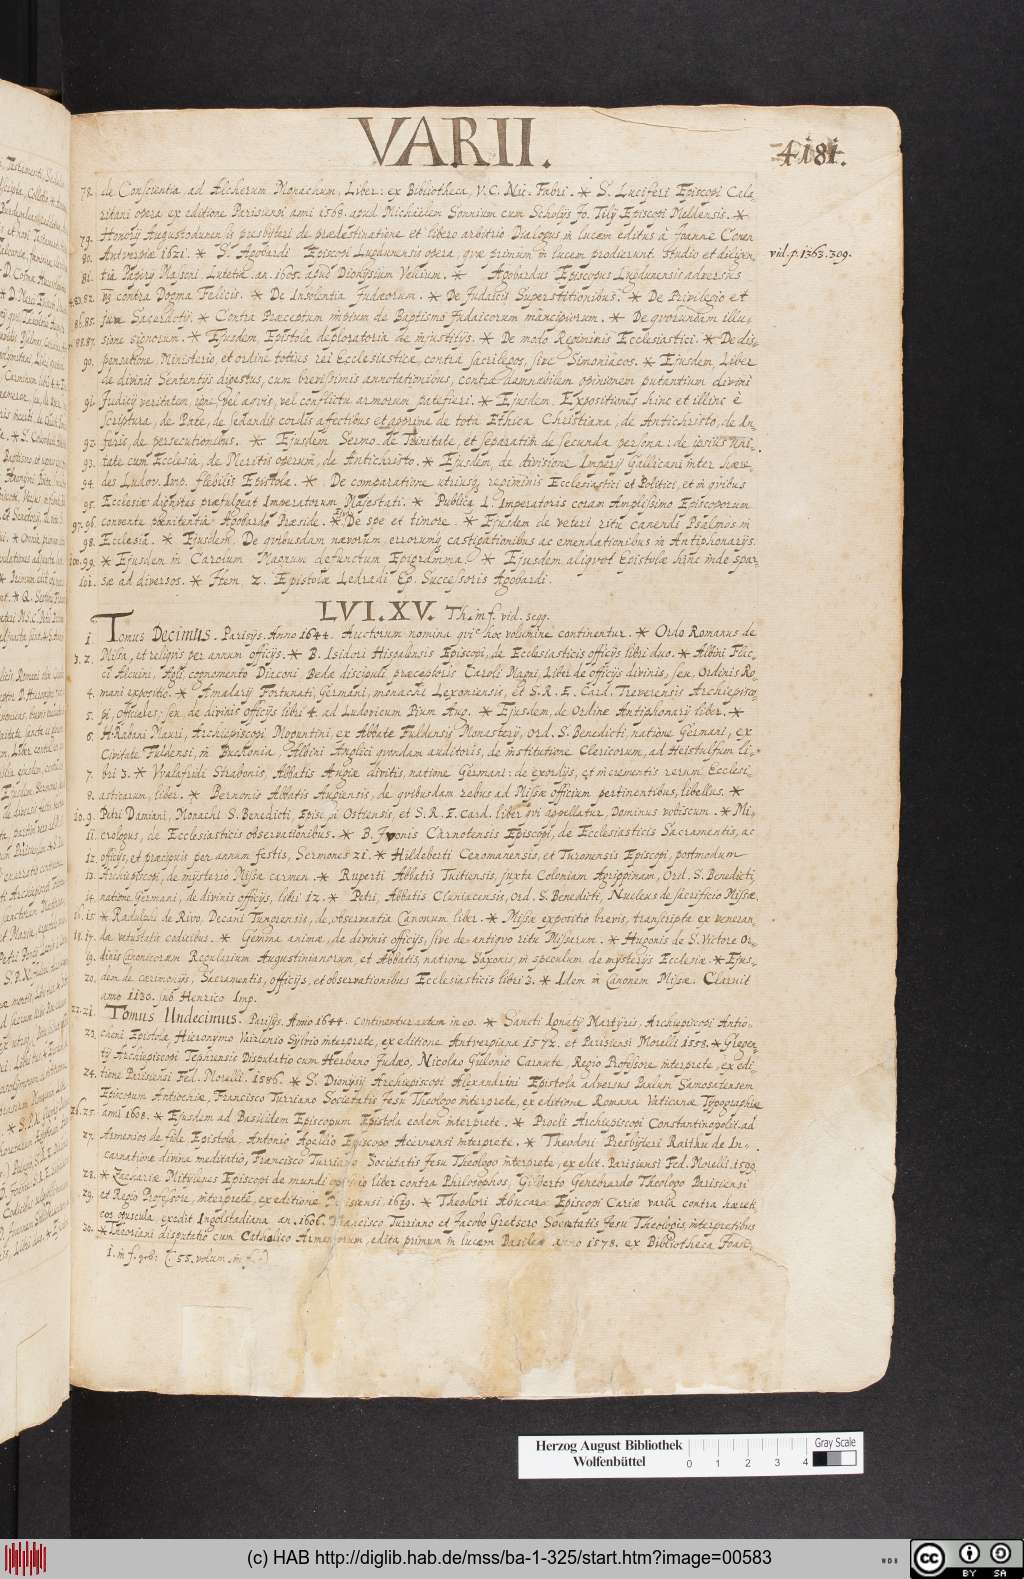 VARII.
4181.
78. de Conscientia, ad Alcherum Monachum, Liber: ex Bibliotheca, V. C. Nic. Fabri. * S. Luciferi Episcopi Cala
ritani opera ex editione Parisiensi anni 1568. apud Michaëlem Sonnium cum Scholijs Jo. Tilij Episcopi Meldensis. *
79. Honorij Augustodunensis presbyteri de praedestinatione et libero arbitrio Dialogus in lucem editus à Joanne Conen
80. Antverpiae 1621. * S. Agobardi Episcopi Lugdunensis opera, quae primum in lucem prodierunt. studio et diligen,
vid. p. 1363. 309.
81. tiâ Papirij Massoni, Lutetiae. an. 1605. apud Dionysium Vallium. * Agobardus Episcopus Lugdunensis adversus
82. contra Dogma Felicis. * De Insolentia Judaeorum. * De Judaicis Superstitionibus. * De Privilegio et
86. 85. Jure Sacerdotij. * Contra Praeceptum impium de Baptismo Judaicorum mancipiorum. * De quorundam illu-
88. 87. sione signorum. * Ejusdem, Epistola deploratoria de injustitijs. * De modo Regiminis Ecclesiastici. * De dis-
90. pensatione, Ministerio, et ordine totius rei Ecclesiasticae, contra sacrilegos, sive Simoniacos. * Ejusdem Liber
de divinis Sententijs digestus, cum brevissimis annotationibus, contra damnabilem opinionem putantium divini
91. Judicij veritatem, igne, vel aquis, vel conflictu armorum patefieri. * Ejusdem Expositiones hinc et illinc è
scriptura, de Pace, de sedandis cordis affectibus et apprime de tota Ethica Christiana, de Antichristo, de In-
92. feris, de persecutionibus. * Ejusdem Sermo de Trinitate, et separatim de secunda persona: de ipsius uni-
93. tate cum Ecclesia, de Meritis operum, de Antichristo. * Ejusdem, de divisione Imperij Gallicani inter haere-
94. des Ludov. Imp. flebilis Epistola. * De comparatione utriusque regiminis Ecclesiastici et Politici, et in quibus
95. Ecclesiae dignitas praefulgeat Imperatorum Majestati. * Publica L. Imperatoris coram Amplissimo Episcoporum
97. 96. conventu poenitentia Agobardo Praeside. * De spe et timore. * Ejusdem de veteri ritu canendi Psalmos in
98. Ecclesia. * Ejusdem, De quibusdam naevorum, errorumque castigationibus ac emendationibus in Antiphonarijs.
100. 99. * Ejusdem in Carolum Magnum defunctum Epigramma. * Ejusdem aliquot Epistolae hinc inde spar-
101. sae ad diversos. * Item 2. Epistolae Ledradi Ep. Successoris Agobardi.
LVI. XV. Th. in f. vid. seqq.
1. Tomus Decimus. Parisijs. Anno 1644. Auctorum nomina qui hoc volumine continentur. * Ordo Romanus de
3. 2. Missa, et reliquis per annum officijs. * B. Isidori Hispalensis Episcopi, de Ecclesiasticis officijs libri duo. * Albini Flac-
ci Alcuini, Abb. cognomento Diaconi Beda discipuli, praeceptoris Caroli Magni, Liber de officijs divinis, seu, Ordinis Ro-
4. mani expositio. * Amalarij Fortunati, Germani, monachi Lexoniensis, et S. R. E. Card. Treverensis Archiepisco,
5. pi, Officiales; seu de divinis officijs libri 4. ad Ludovicum Pium Aug. * Ejusdem, de Ordine Antiphonarij liber. *
6. Hrabani Mauri, Archiepiscopi Moguntini, ex Abbate Fuldensis Monasterij, Ord. S. Benedicti, natione Germani, ex
Civitate Fuldensi, in Buchonia, Albini Anglici quondam auditoris, de institutione Clericorum, ad Heistulfum li,
7. bri 3. * Vvalafridi Strabonis, Abbatis Augiae divitis, natione Germani: de exordijs, et incrementis rerum Ecclesi-
8. asticarum, liber. * Bernonis Abbatis Augiensis, de quibusdam rebus ad Missae officium pertinentibus, libellus. *
10. 9. Petri Damiani, Monachi S. Benedicti, Episcopi Ostiensis, et S. R. E. Card. liber qui appellatur, Dominus vobiscum. * Mi,
11. crologus, de Ecclesiasticis observationibus. * B. Ivonis Carnotensis Episcopi, de Ecclesiasticis Sacramentis, ac
12. officijs, et praecipuis per annum festis, Sermones 21. * Hildeberti Cenomanensis, et Turonensis Episcopi, postmodum
13. Archiepiscopi, de mysterio Missae carmen. * Ruperti Abbatis Tuitiensis, juxta Coloniam Agrippinam, Ord. S. Benedicti,
14. natione Germani, de divinis officijs, libri 12. * Petri, Abbatis Cluniacensis, Ord. S. Benedicti, Nucleus de sacrificio Missae.
16. 15. * Radulphi de Rivo, Decani Tungrensis, de observantia Canonum liber. * Missae expositio brevis, transcripta ex veneran
18. 17. dae vetustatis codicibus. * Gemma animae, de divinis officijs, sive de antiquo ritu Missarum. * Hugonis de S. Victore Or-
19. dinis Canonicorum Regularium Augustinianorum, et Abbatis, natione Saxonis, in speculum de mysterijs Ecclesiae * Ejus-
20. dem de carimonijs, Sacramentis, officijs, et observationibus Ecclesiasticis libri 3. * Idem in Canonem Missae. Claruit
anno 1130. sub Henrico Imp.
22. 21. Tomus Undecimus. Parisijs. Anno 1644. continentur autem in eo. * Sancti Ignatij Martyris, Archiepiscopi Antio-
23. cheni Epistolae, Hieronymo Vairlenio Sylvio interprete, ex editione Antverpiana 1572. et Parisiensi Morelli 1558. * Gregen-
tij Archiepiscopi Tephrensis Disputatio cum Herbano Judaeo, Nicolao Gulonio Carnute, Regio Professore interprete, ex edi-
24. tione Parisiensi Fed. Morelli. 1586. * S. Dionysij Archiepiscopi Alexandrini Epistola adversus Paulum Samosatensem
Episcopum Antiochiae, Francisco Turriano Societatis Jesu Theologo interprete, ex editione Romana Vaticanae Typographiae
26. 25. anni 1608. * Ejusdem ad Basilidem Episcopum Epistola eodem interprete. * Procli Archiepiscopi Constantinopolit. ad
27. Armenios de fide Epistola, Antonio Agellio Episcopo Acernensi interprete. * Theodori Presbyteri Raithu de In-
carnatione divina meditatio, Francisco Turriano Societatis Jesu Theologo interprete, ex edit. Parisiensi Fed. Morelli. 1599.
28. * Zachariae Mitylenes Episcopi de mundi opificio liber contra Philosophos, Gilberto Genebrardo Theologo Parisiensi
29. et Regio Professore, interprete, ex editione Parisiensi. 1619. * Theodori Abucara Episcopi Cariae varia contra haereti,
cos opuscula, ex edit. Ingolstadiana an. 1606. Francisco Turriano et Jacobo Gretsero Societatis Jesu Theologis interpretibus
30. * Theoriani disputatio cum Catholico Armeniorum, edita primum in lucem Basileae anno 1578. ex Bibliotheca Joan-
1. in f. gr: (: 55. volum. in f. :)
Herzog August Bibliothek
Wolfenbüttel
0 1 2 3 4
Gray Scale
(c) HAB http://diglib.hab.de/mss/ba-1-325/start.htm?image=00583
WDB
cc BY SA